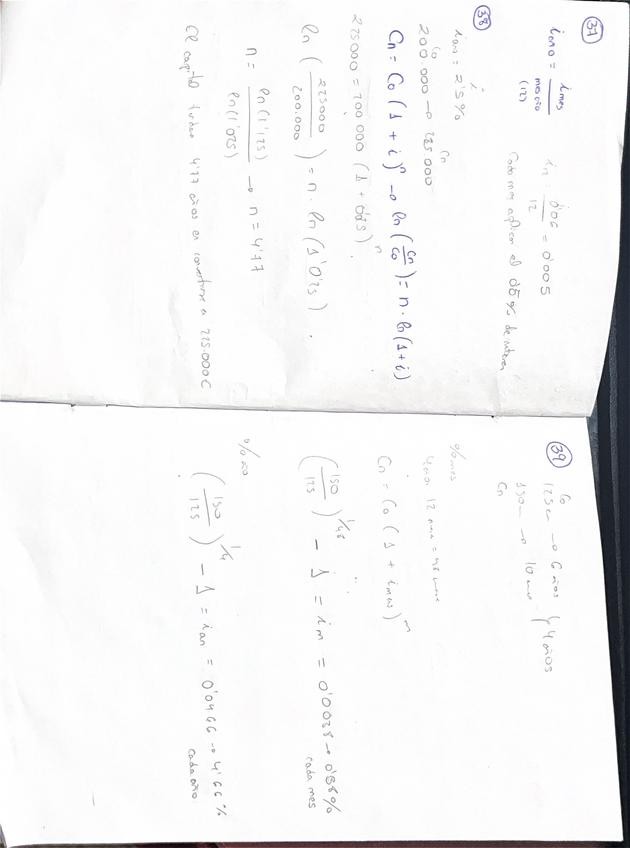 37
i año = i mes / mes año (12)
im = 0'06 / 12 = 0'005
Cada mes aplican el 0'5% de interes
38
i
i an = 2'5%
C0 Cn
200.000 → 225.000
Cn = C0 (1 + i)^n → ln (Cn/C0) = n · ln (1+i)
225000 = 200 000 (1 + 0'025)^n
ln (225000 / 200.000) = n · ln (1'025)
n = ln (1'125) / ln (1'025) → n = 4'77
El capital tardará 4'77 años en convertirse a 225.000€
39
C0
125cm → 6 años
150cm → 10 años } 4 años
Cn
% mes
4 años · 12 meses = 48 meses
Cn = C0 (1 + i mes)^m
(150/125)^1/48 - 1 = im = 0'0038 → 0'38%
cada mes
% año
(150/125)^1/4 - 1 = i an = 0'0466 → 4'66%
cada año